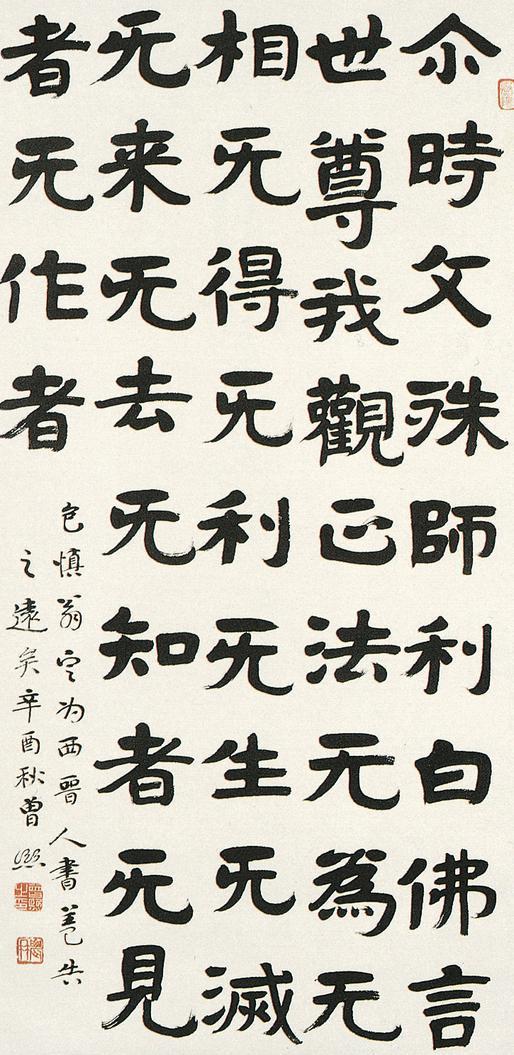 尒時文殊師利白佛言
世尊我觀正法无為无
相无得无利无生无滅
无来无去无知者无見
者无作者
包慎翁定为西晋人書蓋失
之遠矣辛酉秋曾熙